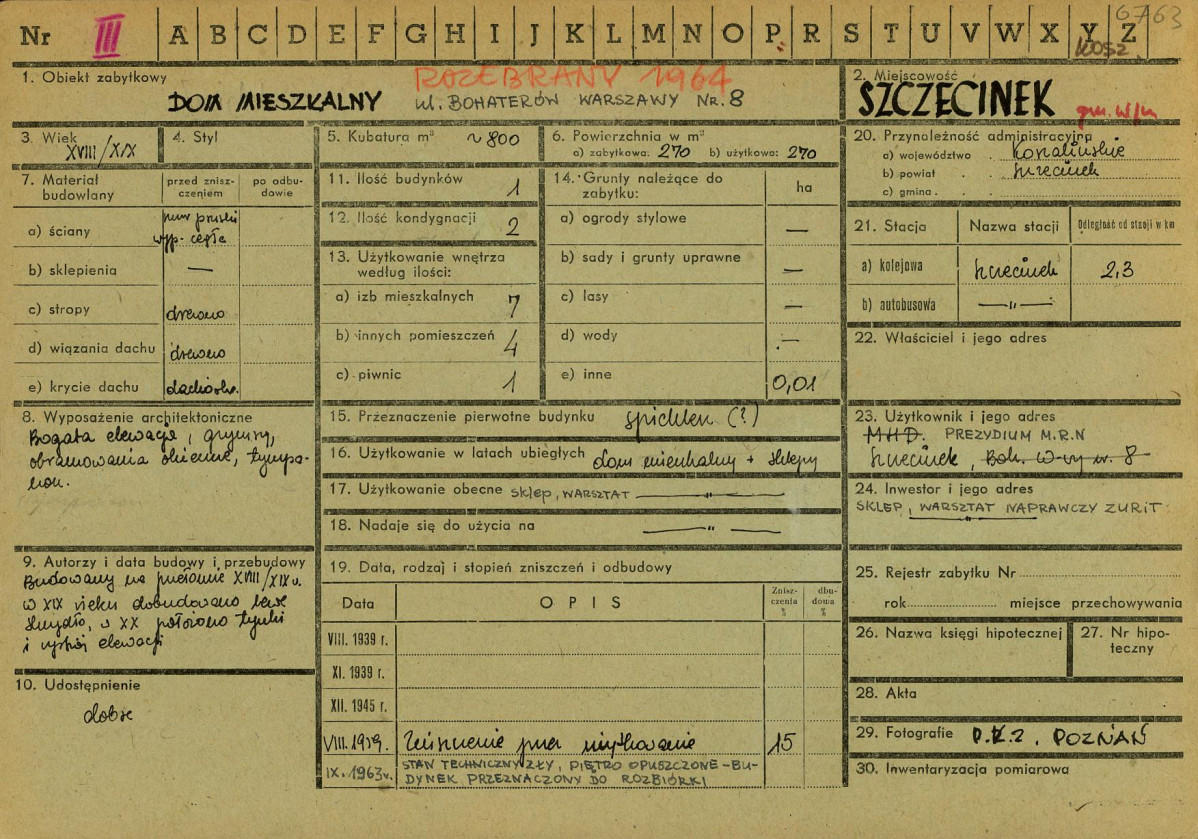 6763
Nr III A B C D E F G H I J K L M N O P R S T U V W X Y Z
KOSZ
1. Obiekt zabytkowy
ROZEBRANY 1964
DOM MIESZKALNY ul. BOHATERÓW WARSZAWY NR. 8
2. Miejscowość
SZCZECINEK
gm. w/m
3. Wiek
XVIII/XIX
4. Styl
5. Kubatura m³ ~800
6. Powierzchnia w m²
a) zabytkowa: 270 b) użytkowa: 270
7. Materiał budowlany
przed zniszczeniem
po odbudowie
a) ściany mur pruski
wyp. cegła
b) sklepienia —
c) stropy drewno
d) wiązania dachu drewno
e) krycie dachu dachówk.
8. Wyposażenie architektoniczne
Bogata elewacja, gzymsy,
obramowania okienne, tympa-
non.
9. Autorzy i data budowy i przebudowy
Budowany na przełomie XVIII/XIX w.
w XIX wieku dobudowano lewe
skrzydło, w XX położono tynki
i wystrój elewacji
10. Udostępnienie
dobre
11. Ilość budynków 1
12. Ilość kondygnacji 2
13. Użytkowanie wnętrza
według ilości:
a) izb mieszkalnych 7
b) innych pomieszczeń 4
c) piwnic 1
14. Grunty należące do
zabytku:
ha
a) ogrody stylowe —
b) sady i grunty uprawne —
c) lasy —
d) wody —
e) inne 0,01
15. Przeznaczenie pierwotne budynku spichlerz (?)
16. Użytkowanie w latach ubiegłych dom mieszkalny + sklepy
17. Użytkowanie obecne SKLEP, WARSZTAT — " —
18. Nadaje się do użycia na — " —
19. Data, rodzaj i stopień zniszczeń i odbudowy
Data
OPIS
Zniszczenia %
dbudowa %
VIII. 1939 r.
XI. 1939 r.
XII. 1945 r.
VIII. 1959. Zniszczenie przez użytkowanie 15
IX. 1963 r. STAN TECHNICZNY ZŁY, PIĘTRO OPUSZCZONE - BU-
DYNEK PRZEZNACZONY DO ROZBIÓRKI
20. Przynależność administracyjna
a) województwo koszalińskie
b) powiat szczecinek
c) gmina
21. Stacja
Nazwa stacji
Odległość od stacji w km
a) kolejowa Szczecinek 2,3
b) autobusowa — " —
22. Właściciel i jego adres
23. Użytkownik i jego adres
MHD. PREZYDIUM M.R.N
Szczecinek, Boh. W-wy nr. 8
24. Inwestor i jego adres
SKLEP, WARSZTAT NAPRAWCZY ZURiT
— " —
25. Rejestr zabytku Nr
rok miejsce przechowywania
26. Nazwa księgi hipotecznej
27. Nr hipo-
teczny
28. Akta
29. Fotografie P.K.Z. POZNAŃ
30. Inwentaryzacja pomiarowa